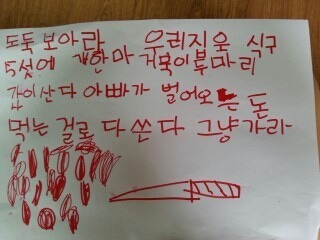 도둑 보아라 우리지운 식구
5섯에 개한마 거북이두마리
같이산다 아빠가 벌어오는 돈
먹는 걸로 다 쓴다 그냥가라